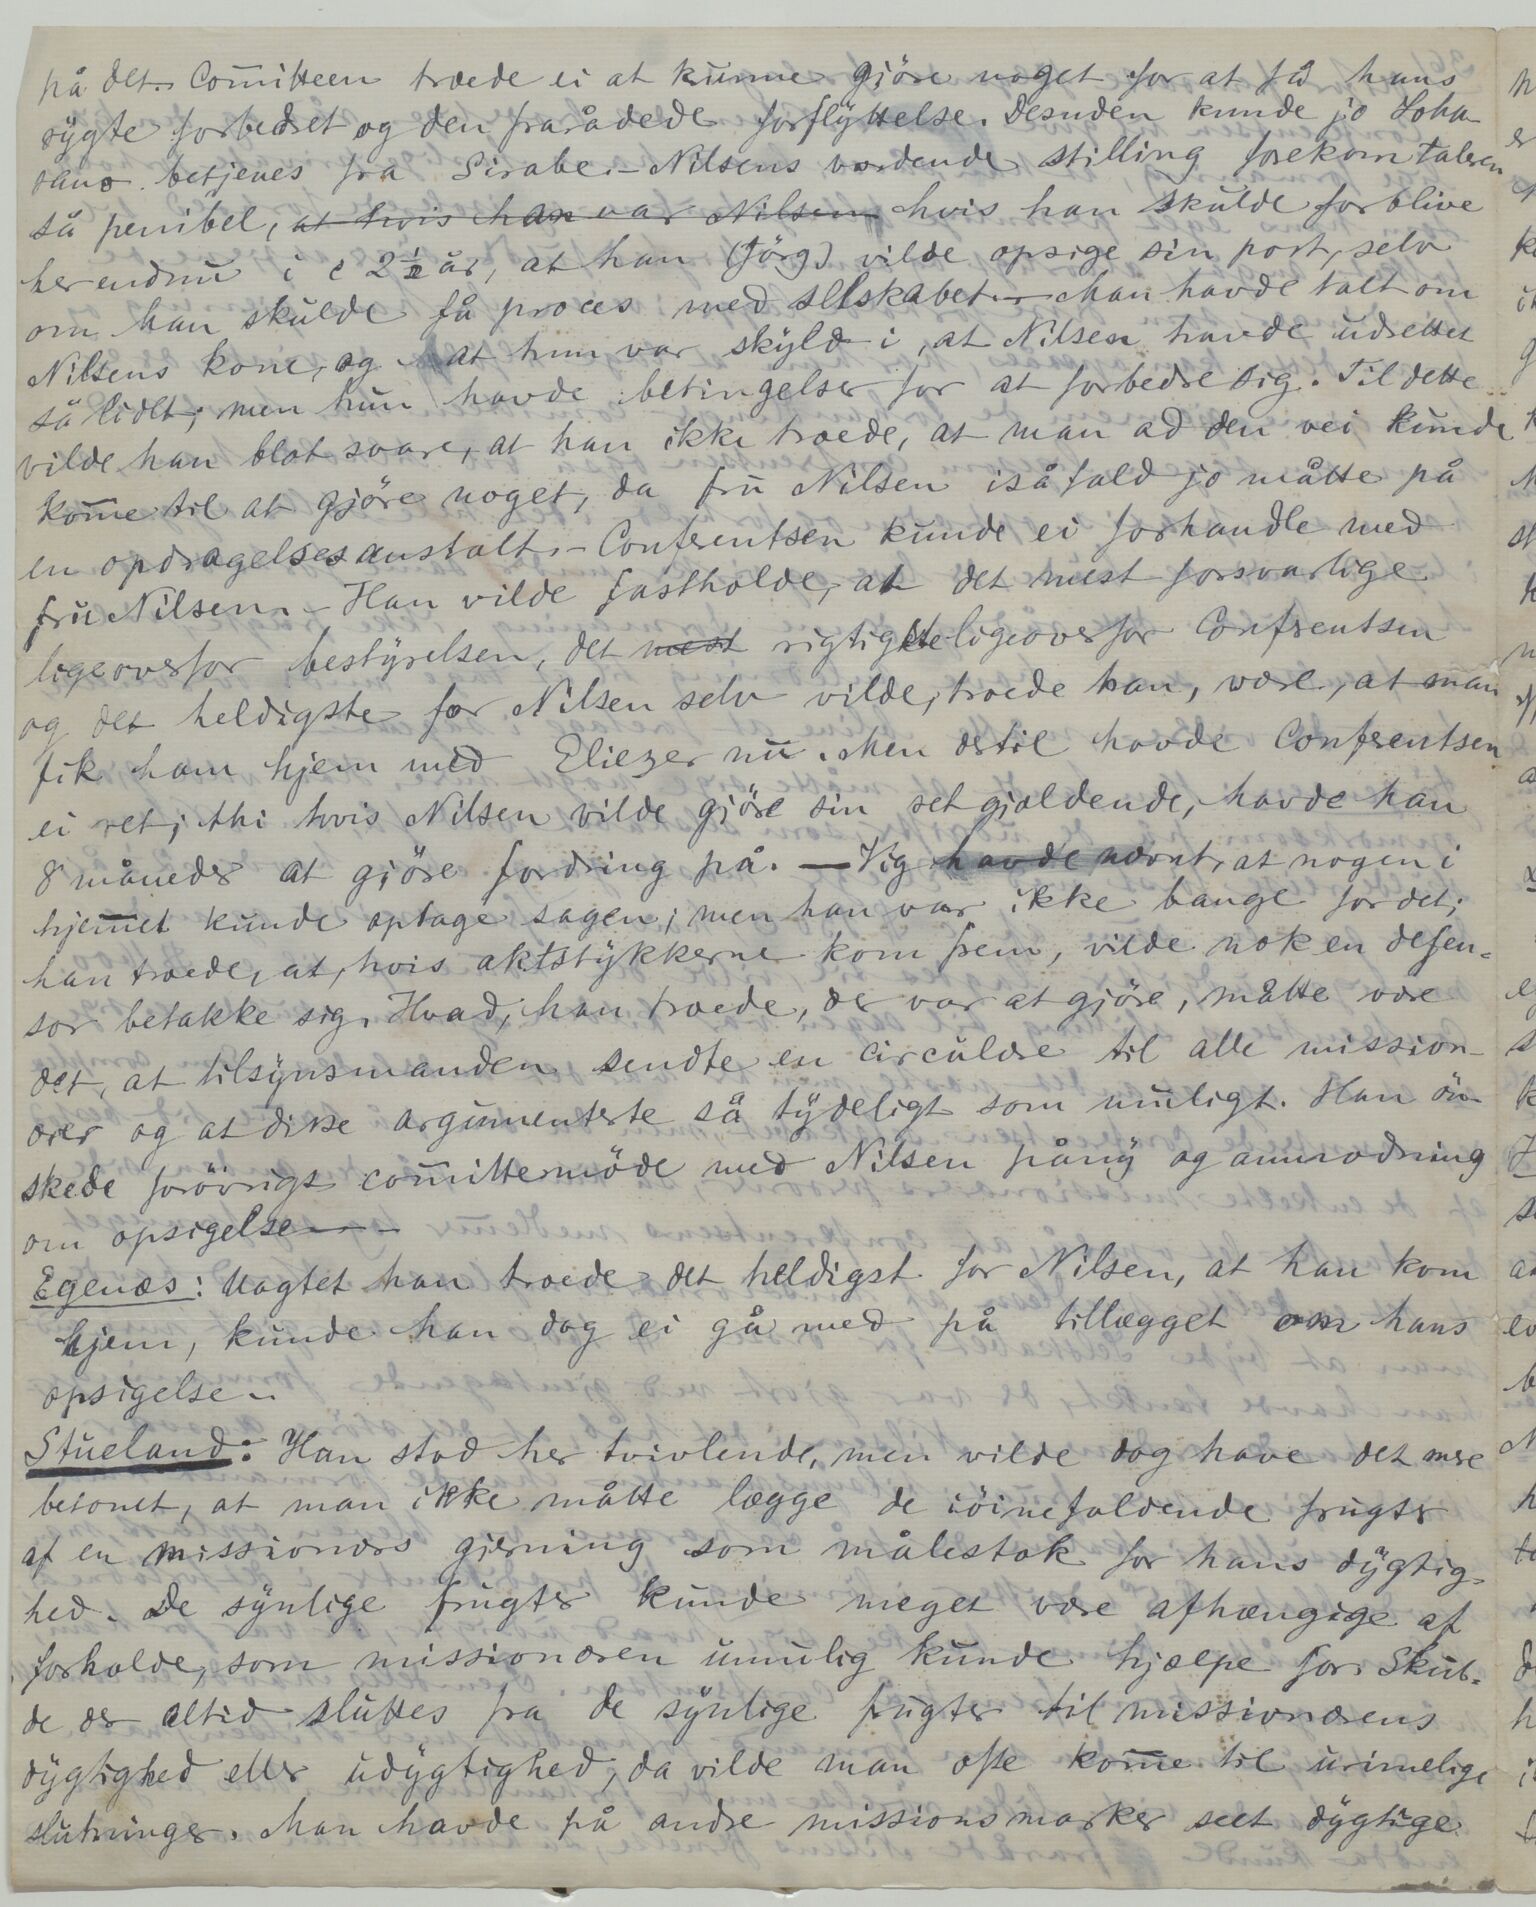 på det. Comitteen troede ei at kunne gjöre noget for at få hans
rygte forbedret og den frarådede forflyttelse. Desuden kunde jo Soha-
vano betjenes fra Sirabe. – Nilsens vordende stilling forekom taleren
så penibel, at hvis han var Nilsen hvis han skulde forblive
her endnu i c 2½ år, at han (Jörg) vilde opsige sin post, selv
om han skulde få proces med selskabet. – Man havde talt om
Nilsens kone, og at hun var skyld i, at Nilsen havde udrettet
så lidt; men hun havde betingelser for at forbedre sig. Til dette
vilde han blot svare, at han ikke troede, at man ad den vei kunde
komme til at gjöre noget, da fru Nilsen isåfald jo måtte på
en opdragelsesanstalt. – Conferentsen kunde ei forhandle med
fru Nilsen. – Han vilde fastholde, at det mest forsvarlige
ligeoverfor bestyrelsen, det mest rigtigste ligeoverfor Conferentsen
og det heldigste for Nilsen selv vilde, troede han, være, at man
fik ham hjem med Eliezer nu. Men dertil havde Conferentsen
ei ret; thi hvis Nilsen vilde gjöre sin ret gjældende, havde han
8 måneder at gjöre fordring på. – Vig havde nævnt, at nogen i
hjemmet kunde optage sagen; men han var ikke bange for det;
han troede, at, hvis aktstykkerne kom frem, vilde nok en defen-
sor betakke sig. Hvad, han troede, der var at gjöre, måtte være
det, at tilsynsmanden sendte en circulære til alle mission-
ærer og at disse argumenterte så tydeligt som muligt. Han ön-
skede forövrigt comittemöde med Nilsen påny og anmodning
om opsigelse –
Egenæs: Uagtet han troede det heldigst for Nilsen, at han kom
hjem, kunde han dog ei gå med på tillægget om hans
opsigelse. –
Stueland: Han stod her tvivlende, men vilde dog have det mere
betonet, at man ikke måtte lægge de iöinefaldende frugter
af en missionærs gjerning som målestok for hans dygtig-
hed. De synlige frugter kunde meget være afhængige af
forholde, som missionæren umulig kunde hjælpe for. Skul-
de der altid sluttes fra de synlige frugter til missionærens
dygtighed eller udygtighed, da vilde man ofte komme til urimelige
slutninger. Man havde på andre missionsmarker seet dygtige